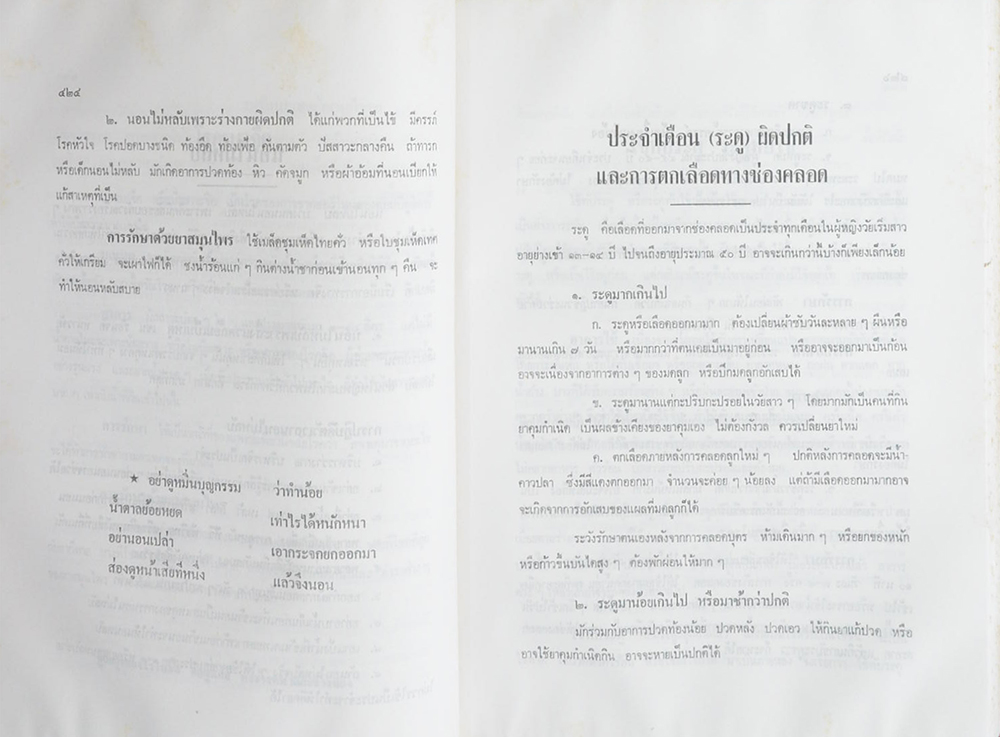 ๔๒๔
๒. นอนไม่หลับเพราะร่างกายผิดปกติ ได้แก่พวกที่เป็นไข้ มีครรภ์
โรคหัวใจ โรคปอดบางชนิด ท้องอืด ท้องเฟ้อ คันตามตัว ปัสสาวะกลางคืน ถ้าทารก
หรือเด็กนอนไม่หลับ มักเกิดอาการปวดท้อง หิว คัดจมูก หรือผ้าอ้อมที่นอนเปียกให้
แก้สาเหตุที่เป็น
การรักษาด้วยยาสมุนไพร ใช้เมล็ดชุมเห็ดไทยคั่ว หรือใบชุมเห็ดเทศ
คั่วให้เกรียม จะเผาไฟก็ได้ ชงน้ำร้อนแก่ ๆ กินต่างน้ำชาก่อนเข้านอนทุก ๆ คืน จะ
ทำให้นอนหลับสบาย
★ อย่าดูหมิ่นบุญกรรม ว่าทำน้อย
น้ำตาลย้อยหยด เท่าไรได้หนักหนา
อย่านอนเปล่า เอากระจกยกออกมา
ส่องดูหน้าเสียทีหนึ่ง แล้วจึงนอน
ประจำเดือน (ระดู) ผิดปกติ
และการตกเลือดทางช่องคลอด
ระดู คือเลือดที่ออกมาจากช่องคลอดเป็นประจำทุกเดือนในผู้หญิงวัยเริ่มสาว
อายุย่างเข้า ๑๓-๑๔ ปี ไปจนถึงอายุประมาณ ๕๐ ปี อาจจะเกินกว่านี้บ้างก็เพียงเล็กน้อย
๑. ระดูมากเกินไป
ก. ระดูหรือเลือดออกมามาก ต้องเปลี่ยนผ้าซับวันละหลาย ๆ ผืนหรือ
มานานเกิน ๗ วัน หรือมากกว่าที่ตนเคยเป็นมาอยู่ก่อน หรืออาจจะออกมาเป็นก้อน
อาจจะเนื่องจากอาการต่าง ๆ ของมดลูก หรือปีกมดลูกอักเสบได้
ข. ระดูมานานแต่กะปริบกะปรอยในวัยสาว ๆ โดยมากมักเป็นคนที่กิน
ยาคุมกำเนิด เป็นผลข้างเคียงของยาคุมเอง ไม่ต้องกังวล ควรเปลี่ยนยาใหม่
ค. ตกเลือดภายหลังการคลอดลูกใหม่ ๆ ปกติหลังการคลอดจะมีน้ำ-
คาวปลา ซึ่งมีสีแดงตกออกมา จำนวนจะค่อย ๆ น้อยลง แต่ถ้ามีเลือดออกมามากอาจ
จะเกิดจากการอักเสบของแผลที่มดลูกก็ได้
ระวังรักษาตนเองหลังจากการคลอดบุตร ห้ามเดินมาก ๆ หรือยกของหนัก
หรือก้าวขึ้นบันไดสูง ๆ ต้องพักผ่อนให้มาก ๆ
๒. ระดูมาน้อยเกินไป หรือมาช้ากว่าปกติ
มักร่วมกับอาการปวดท้องน้อย ปวดหลัง ปวดเอว ให้กินยาแก้ปวด หรือ
อาจใช้ยาคุมกำเนิดกิน อาจจะหายเป็นปกติได้